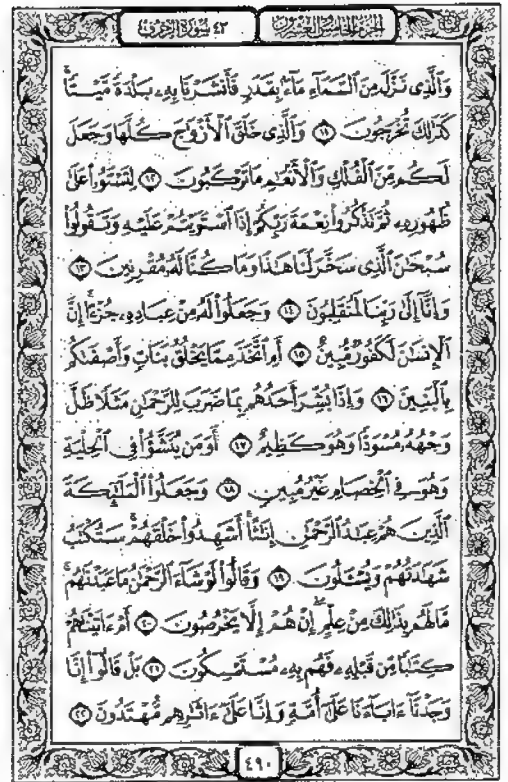 الجزء الخامس والعشرون ٤٣ سورة الزخرف
وَٱلَّذِى نَزَّلَ مِنَ ٱلسَّمَآءِ مَآءًۢ بِقَدَرٍ فَأَنشَرْنَا بِهِۦ بَلْدَةً مَّيْتًا
كَذَٰلِكَ تُخْرَجُونَ ١١ وَٱلَّذِى خَلَقَ ٱلْأَزْوَٰجَ كُلَّهَا وَجَعَلَ
لَكُم مِّنَ ٱلْفُلْكِ وَٱلْأَنْعَٰمِ مَا تَرْكَبُونَ ١٢ لِتَسْتَوُۥا۟ عَلَىٰ
ظُهُورِهِۦ ثُمَّ تَذْكُرُوا۟ نِعْمَةَ رَبِّكُمْ إِذَا ٱسْتَوَيْتُمْ عَلَيْهِ وَتَقُولُوا۟
سُبْحَٰنَ ٱلَّذِى سَخَّرَ لَنَا هَٰذَا وَمَا كُنَّا لَهُۥ مُقْرِنِينَ ١٣
وَإِنَّآ إِلَىٰ رَبِّنَا لَمُنقَلِبُونَ ١٤ وَجَعَلُوا۟ لَهُۥ مِنْ عِبَادِهِۦ جُزْءًا ۚ إِنَّ
ٱلْإِنسَٰنَ لَكَفُورٌ مُّبِينٌ ١٥ أَمِ ٱتَّخَذَ مِمَّا يَخْلُقُ بَنَاتٍ وَأَصْفَىٰكُم
بِٱلْبَنِينَ ١٦ وَإِذَا بُشِّرَ أَحَدُهُم بِمَا ضَرَبَ لِلرَّحْمَٰنِ مَثَلًا ظَلَّ
وَجْهُهُۥ مُسْوَدًّا وَهُوَ كَظِيمٌ ١٧ أَوَمَن يُنَشَّؤُا۟ فِى ٱلْحِلْيَةِ
وَهُوَ فِى ٱلْخِصَامِ غَيْرُ مُبِينٍ ١٨ وَجَعَلُوا۟ ٱلْمَلَٰٓئِكَةَ
ٱلَّذِينَ هُمْ عِبَٰدُ ٱلرَّحْمَٰنِ إِنَٰثًا ۚ أَشَهِدُوا۟ خَلْقَهُمْ ۚ سَتُكْتَبُ
شَهَٰدَتُهُمْ وَيُسْـَٔلُونَ ١٩ وَقَالُوا۟ لَوْ شَآءَ ٱلرَّحْمَٰنُ مَا عَبَدْنَٰهُم ۗ
مَّا لَهُم بِذَٰلِكَ مِنْ عِلْمٍ ۖ إِنْ هُمْ إِلَّا يَخْرُصُونَ ٢٠ أَمْ ءَاتَيْنَٰهُمْ
كِتَٰبًا مِّن قَبْلِهِۦ فَهُم بِهِۦ مُسْتَمْسِكُونَ ٢١ بَلْ قَالُوٓا۟ إِنَّا
وَجَدْنَآ ءَابَآءَنَا عَلَىٰٓ أُمَّةٍ وَإِنَّا عَلَىٰٓ ءَاثَٰرِهِم مُّهْتَدُونَ ٢٢
٤٩٠